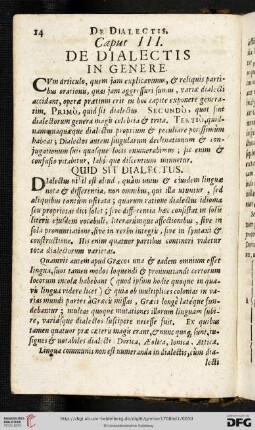 14 DE DIALECTIS.
Caput III.
DE DIALECTIS
IN GENERE.
CUm articulo, quem jam explicavimus, & reliquis parti-
bus orationis, quas jam aggressuri sumus, variæ dialecti
accidant, operæ pretium erit in hoc capite exponere genera-
tim, PRIMO, quid sit dialectus. SECUNDO, quot sint
dialectorum genera magis celebria & trita. TERTIO, quid-
nam unaquæque dialectus proprium & peculiare potissimum
habeat; Dialectos autem singularum declinationum & con-
jugationum suis quasque locis enumerabimus; sic enim &
confusio vitabitur, labórque discentium minuetur.
QUID SIT DIALECTUS.
Dialectus nihil est aliud, quàm unius & ejusdem linguæ
nota & differentia, non omnibus, qui illa utuntur, sed
aliquibus tantum usitata; quarum ratione dialectus idioma
seu proprietas dici solet; sive differentia hæc consistat in solis
literis ejusdem vocabuli, literarumque affectionibus, sive in
sola pronuntiatione, sive in verbis integris, sive in syntaxi &
constructione. His enim quatuor partibus contineri videtur
tota dialectorum varietas.
Quamvis autem apud Græcos una & eadem omnium esset
lingua, suos tamen modos loquendi & pronuntiandi certorum
locorum incolæ habebant (quod ipsum hodie quoque in qua-
vis lingua videre licet) & quia ob multiplices colonias in va-
rias mundi partes à Græcis missas, Græci longè latéque fun-
debantur; multas quoque mutationes illorum linguam subi-
re, variásque dialectos suscipere necesse fuit. Ex quibus
tamen quatuor præ cæteris magis erant, & nunc quoque sunt, insi-
gnes & notabiles dialecti: Dorica, Æolica, Ionica, Attica.
Lingua communis non est numeranda in dialectis, cùm dia-
lecti